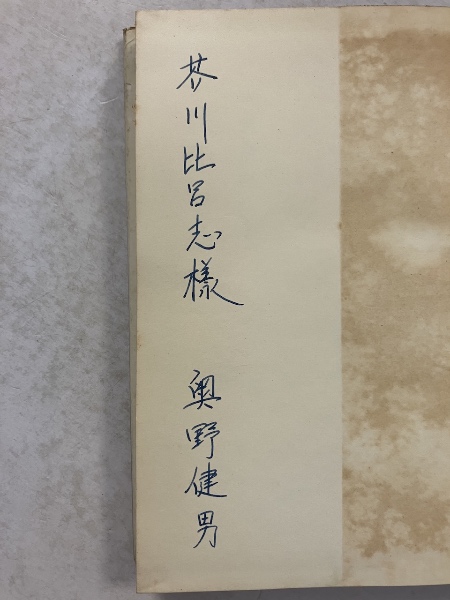 芥川比呂志様
奥野健男